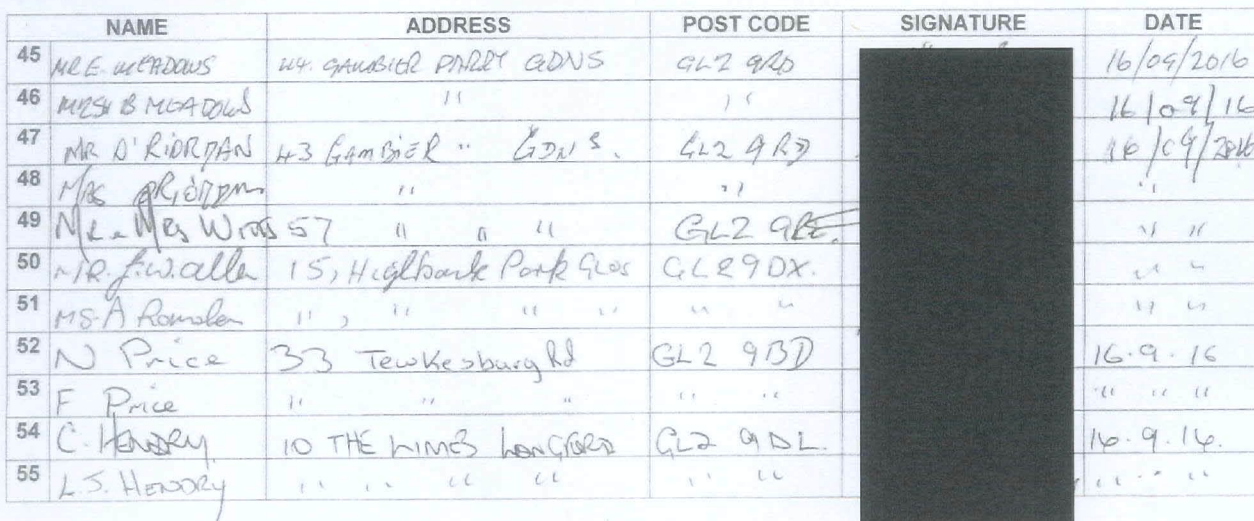 NAME ADDRESS POST CODE SIGNATURE DATE
45 MR E. MEADOWS 44. GAMBIER PARRY GDNS GL2 9RD 16/09/2016
46 B MEADOWS " " 16/09/16
47 MR O'RIORDAN 43 GAMBIER " GDNS. GL2 9RD 16/09/2016
48 MRS O'RIORDAN " " "
49 MR & MRS 57 " " " GL2 9RE. " "
50 MR. 15, Highbank Park Glos GL2 9DX. " "
51 MS. A " , " " " " " " "
52 N Price 33 Tewkesbury Rd GL2 9BD 16.9.16
53 F Price " " " " " " " "
54 C. HENDRY 10 THE LIMES LONGFORD GL2 9DL. 16.9.16.
55 L.S. HENDRY " " " " " " " " "